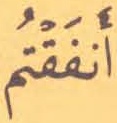 أَنفَقْتُم